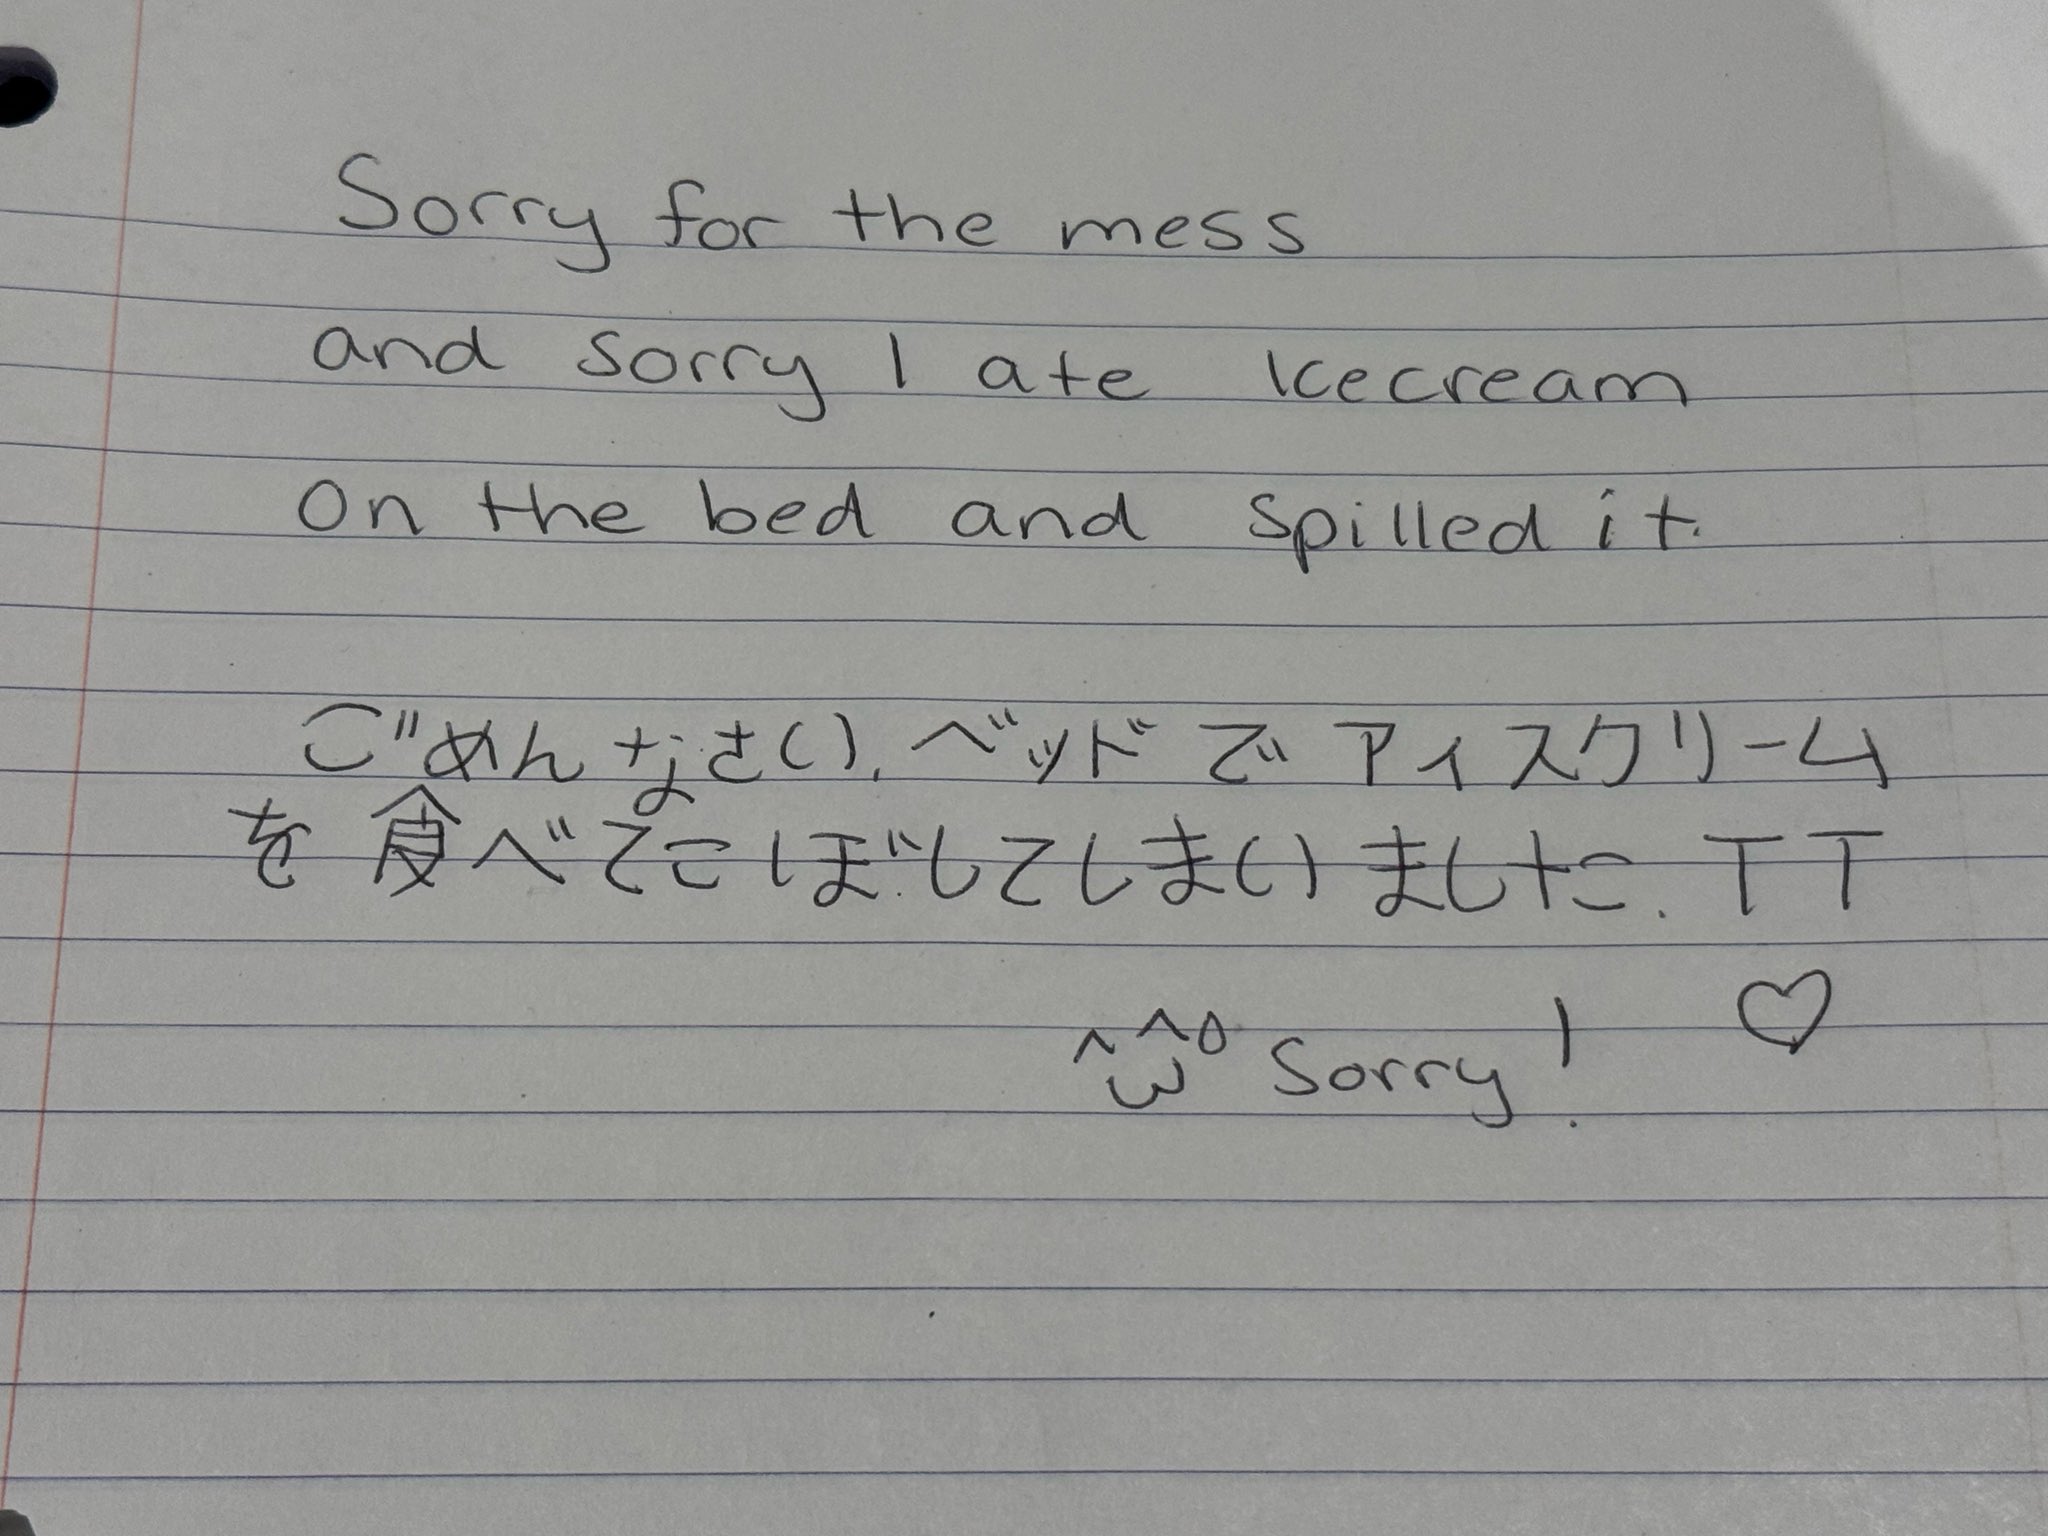 Sorry for the mess
and sorry I ate Icecream
on the bed and spilled it.
ごめんなさい.ベッドでアイスクリーム
を食べてこぼしてしまいました. TT
^ω^ Sorry! ♡